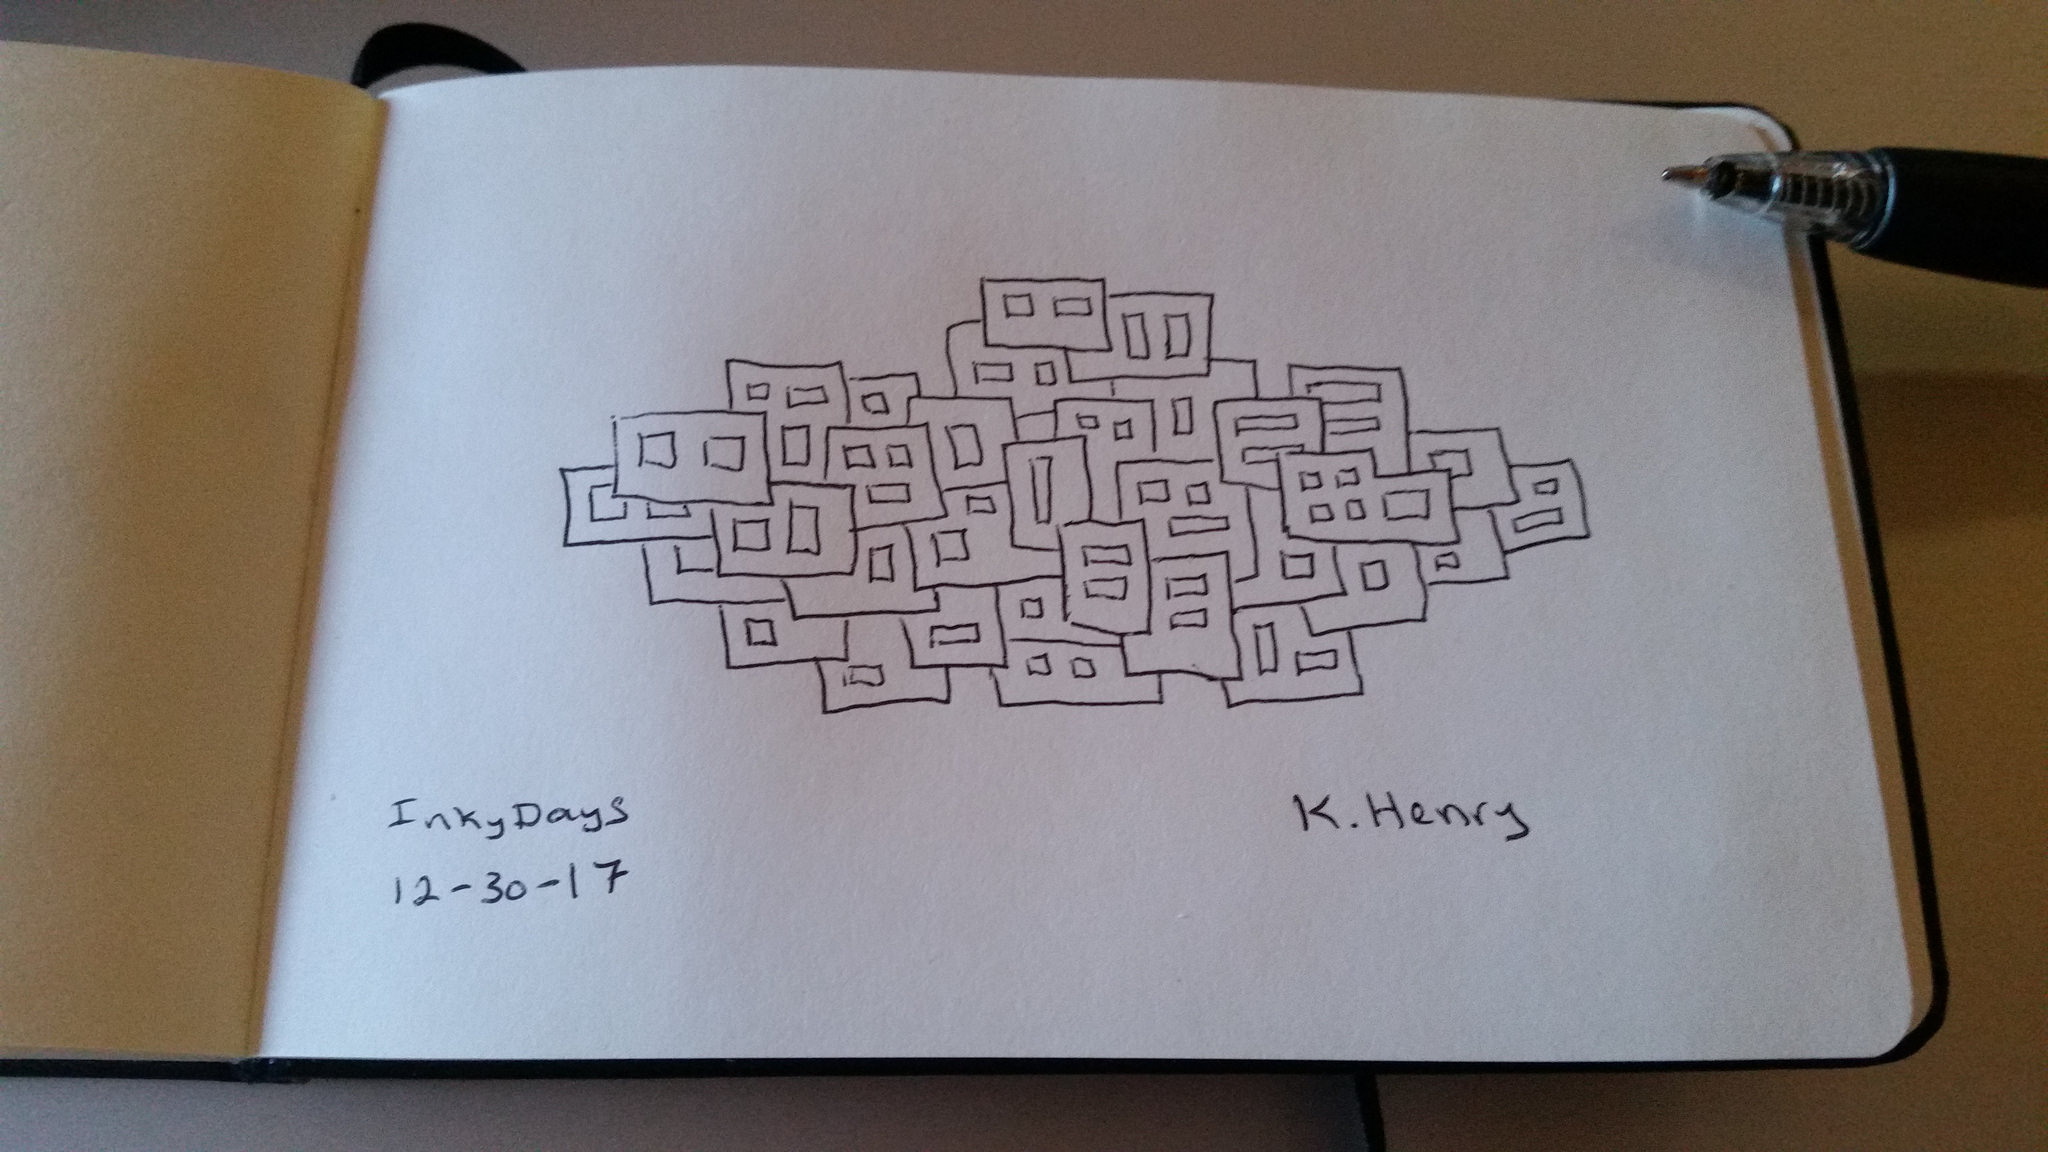 InkyDays
12-30-17
K. Henry